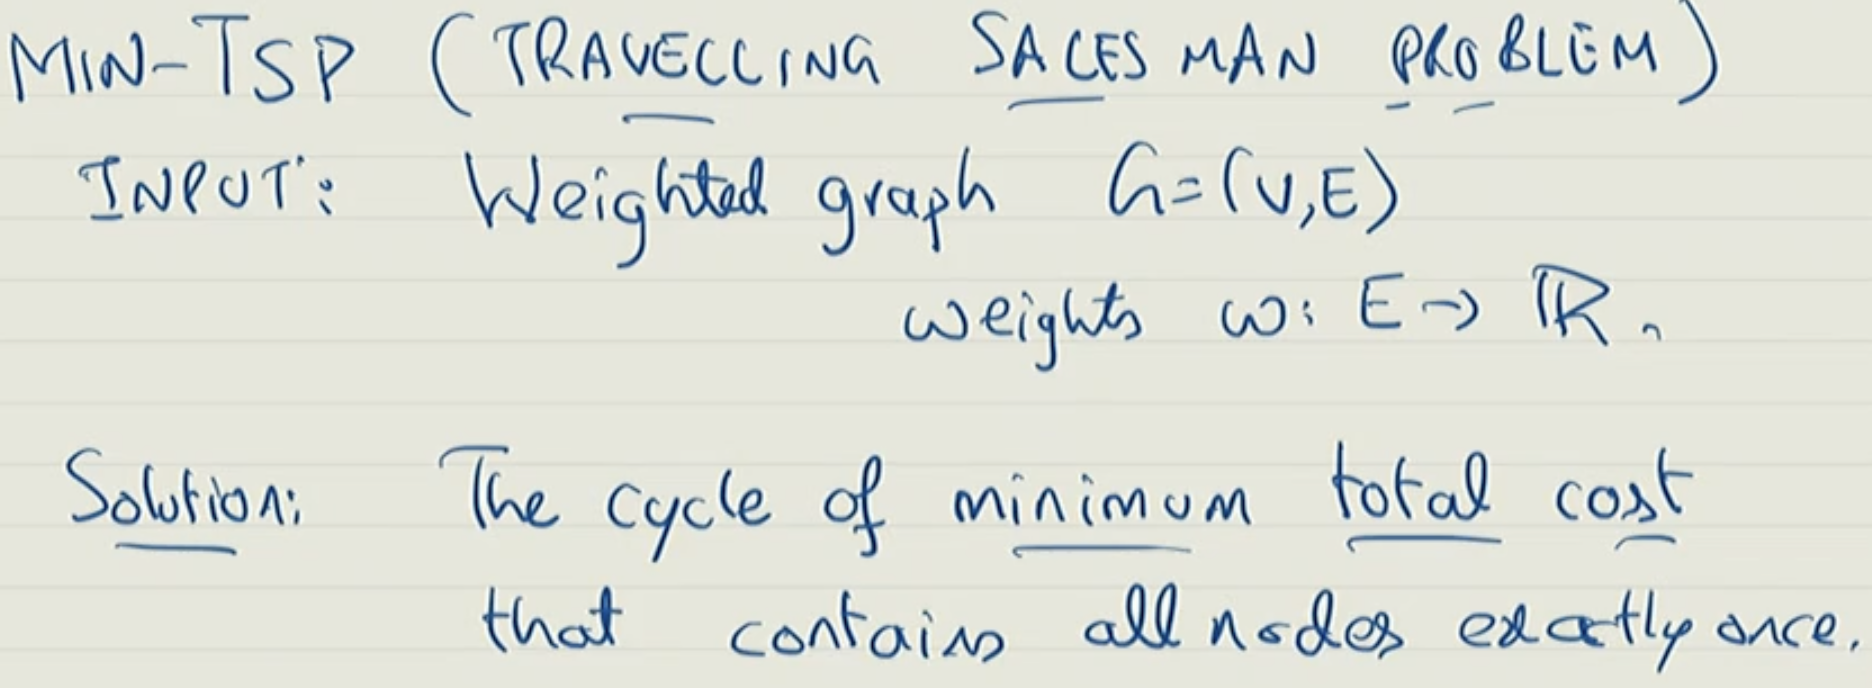 MIN-TSP (TRAVELLING SALESMAN PROBLEM)
INPUT: Weighted graph G=(V,E)
weights w: E → ℝ.
Solution: The cycle of minimum total cost
that contains all nodes exactly once.